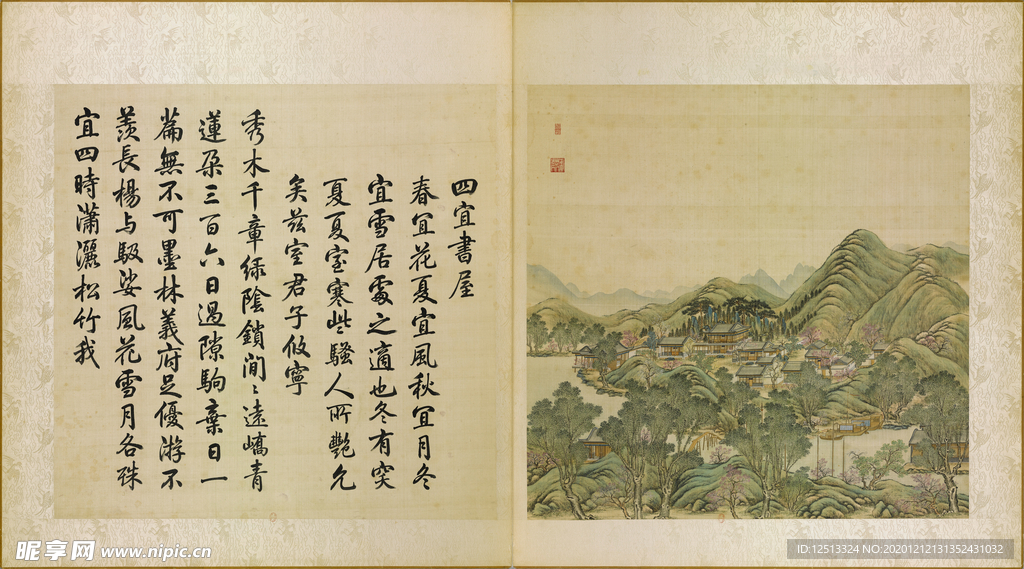 四宜書屋
春宜花夏宜風秋宜月冬
宜雪居處之適也冬有突
夏夏室寒些騷人所艷允
矣茲室君子攸寧
秀木千章綠陰鎖間〻遠嶠青
蓮朶三百六日過隙駒棄日一
篇無不可墨林義府足優游不
羨長楊与馺娑風花雪月各殊
宜四時瀟灑松竹我
昵享网 www.nipic.cn
ID:12513324 NO:20201212131352431032